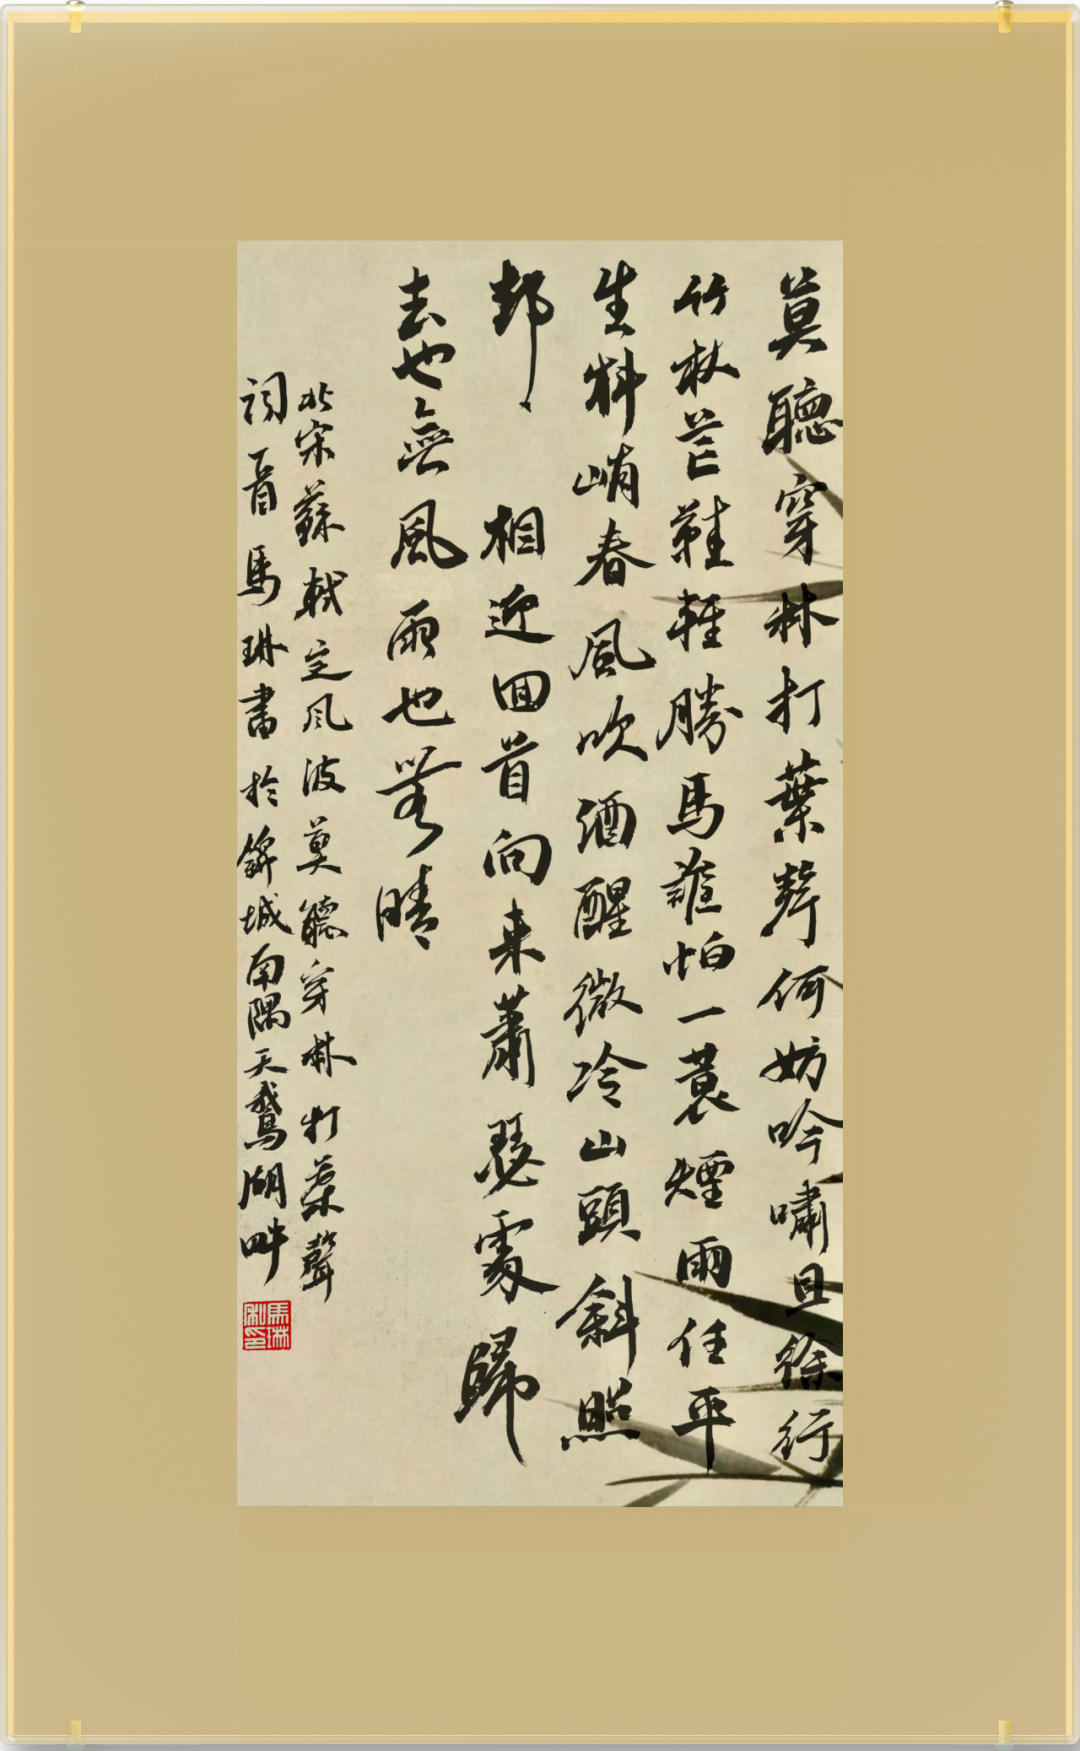 莫聽穿林打葉聲何妨吟嘯且徐行
竹杖芒鞋輕勝馬誰怕一蓑煙雨任平
生料峭春風吹酒醒微冷山頭斜照
却相迎回首向来蕭瑟處歸
去也無風雨也無晴
北宋蘇軾定风波莫聽穿林打葉聲
词一首馬琳書於錦城南隅天鵞湖畔
馬琳私印